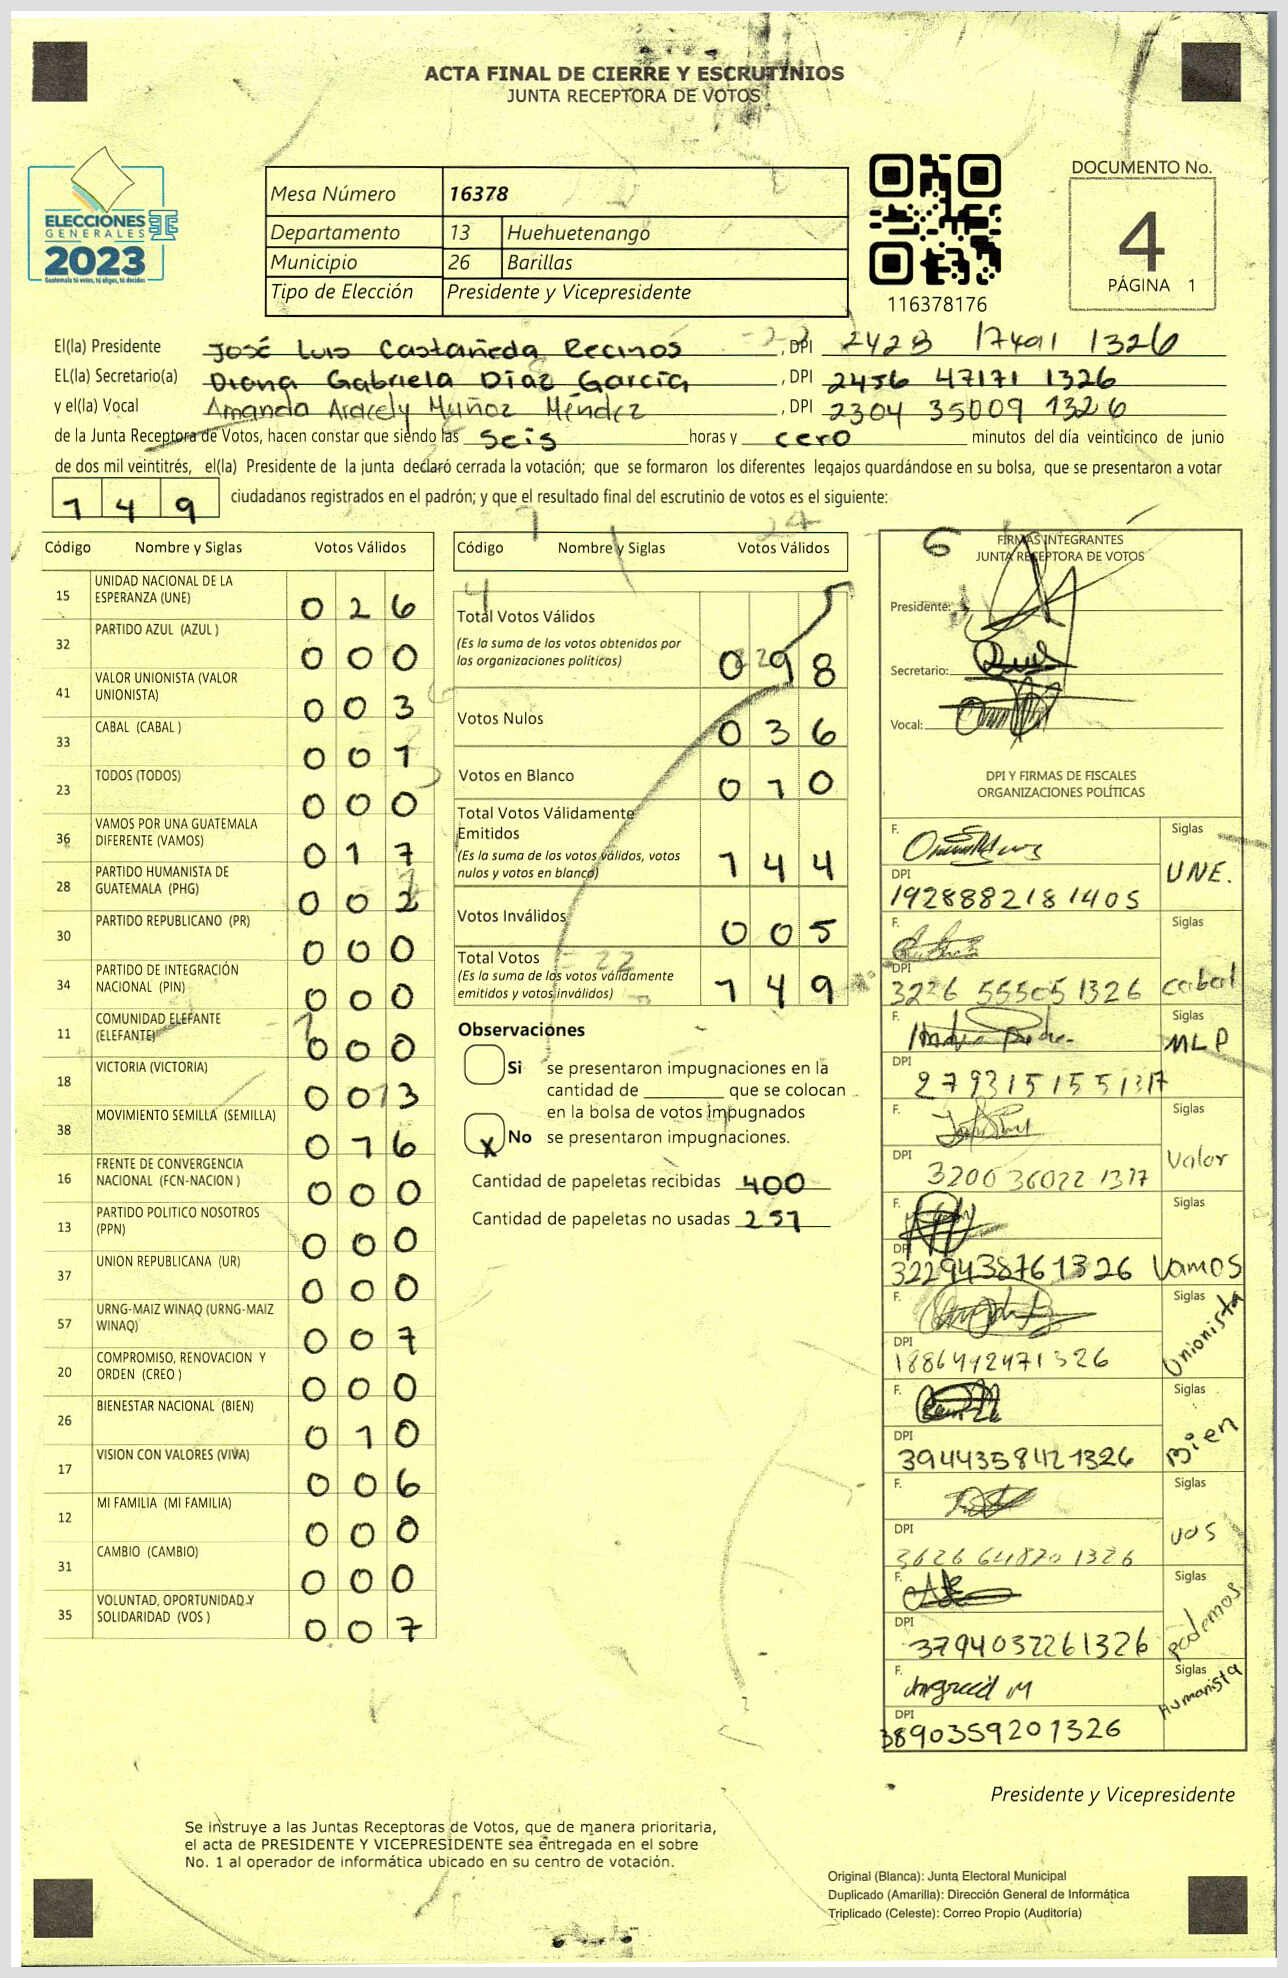 ACTA FINAL DE CIERRE Y ESCRUTINIOS
JUNTA RECEPTORA DE VOTOS
ELECCIONES
GENERALES
2023
Guatemala tú votes, tú eliges, tú decides
Mesa Número 16378
Departamento 13 Huehuetenango
Municipio 26 Barillas
Tipo de Elección Presidente y Vicepresidente
116378176
DOCUMENTO No.
4
PÁGINA 1
El(la) Presidente José Luis Castañeda Recinos , DPI 2428 17491 1326
EL(la) Secretario(a) Diana Gabriela Díaz García , DPI 2456 47171 1326
y el(la) Vocal Amanda Aracely Muñoz Méndez , DPI 2304 35009 1326
de la Junta Receptora de Votos, hacen constar que siendo las seis horas y cero minutos del día veinticinco de junio
de dos mil veintitrés, el(la) Presidente de la junta declaró cerrada la votación; que se formaron los diferentes legajos guardándose en su bolsa, que se presentaron a votar
1 4 9 ciudadanos registrados en el padrón; y que el resultado final del escrutinio de votos es el siguiente:
Código Nombre y Siglas Votos Válidos
15 UNIDAD NACIONAL DE LA ESPERANZA (UNE) 0 2 6
32 PARTIDO AZUL (AZUL ) 0 0 0
41 VALOR UNIONISTA (VALOR UNIONISTA) 0 0 3
33 CABAL (CABAL ) 0 0 1
23 TODOS (TODOS) 0 0 0
36 VAMOS POR UNA GUATEMALA DIFERENTE (VAMOS) 0 1 7
28 PARTIDO HUMANISTA DE GUATEMALA (PHG) 0 0 2
30 PARTIDO REPUBLICANO (PR) 0 0 0
34 PARTIDO DE INTEGRACIÓN NACIONAL (PIN) 0 0 0
11 COMUNIDAD ELEFANTE (ELEFANTE) 0 0 0
18 VICTORIA (VICTORIA) 0 0 3
38 MOVIMIENTO SEMILLA (SEMILLA) 0 1 6
16 FRENTE DE CONVERGENCIA NACIONAL (FCN-NACION ) 0 0 0
13 PARTIDO POLITICO NOSOTROS (PPN) 0 0 0
37 UNION REPUBLICANA (UR) 0 0 0
57 URNG-MAIZ WINAQ (URNG-MAIZ WINAQ) 0 0 7
20 COMPROMISO, RENOVACION Y ORDEN (CREO ) 0 0 0
26 BIENESTAR NACIONAL (BIEN) 0 1 0
17 VISION CON VALORES (VIVA) 0 0 6
12 MI FAMILIA (MI FAMILIA) 0 0 0
31 CAMBIO (CAMBIO) 0 0 0
35 VOLUNTAD, OPORTUNIDAD Y SOLIDARIDAD (VOS ) 0 0 7
Código Nombre y Siglas Votos Válidos
Total Votos Válidos
(Es la suma de los votos obtenidos por
las organizaciones políticas) 0 9 8
Votos Nulos 0 3 6
Votos en Blanco 0 1 0
Total Votos Válidamente
Emitidos
(Es la suma de los votos válidos, votos
nulos y votos en blanco) 1 4 4
Votos Inválidos 0 0 5
Total Votos
(Es la suma de los votos válidamente
emitidos y votos inválidos) 1 4 9
Observaciones
Si se presentaron impugnaciones en la
cantidad de ________ que se colocan
en la bolsa de votos impugnados
x No se presentaron impugnaciones.
Cantidad de papeletas recibidas 400
Cantidad de papeletas no usadas 251
6
FIRMAS INTEGRANTES
JUNTA RECEPTORA DE VOTOS
Presidente:
Secretario:
Vocal:
DPI Y FIRMAS DE FISCALES
ORGANIZACIONES POLÍTICAS
F. Siglas
UNE.
DPI
1928882181405
F. Siglas
DPI
3226 55505 1326 Cabal
F. Siglas
MLP
DPI
2793151551317
F. Siglas
DPI Valor
3200 36022 1317
F. Siglas
DPI
3229438761326 Vamos
F. Siglas
Unionista
DPI
1886492471326
F. Siglas
DPI Bien
3944358421326
F. Siglas
DPI VOS
3626 64870 1326
F. Siglas
podemos
DPI
3794032261326
F. Siglas
Humanista
DPI
3890359201326
Presidente y Vicepresidente
Se instruye a las Juntas Receptoras de Votos, que de manera prioritaria,
el acta de PRESIDENTE Y VICEPRESIDENTE sea entregada en el sobre
No. 1 al operador de informática ubicado en su centro de votación.
Original (Blanca): Junta Electoral Municipal
Duplicado (Amarilla): Dirección General de Informática
Triplicado (Celeste): Correo Propio (Auditoría)